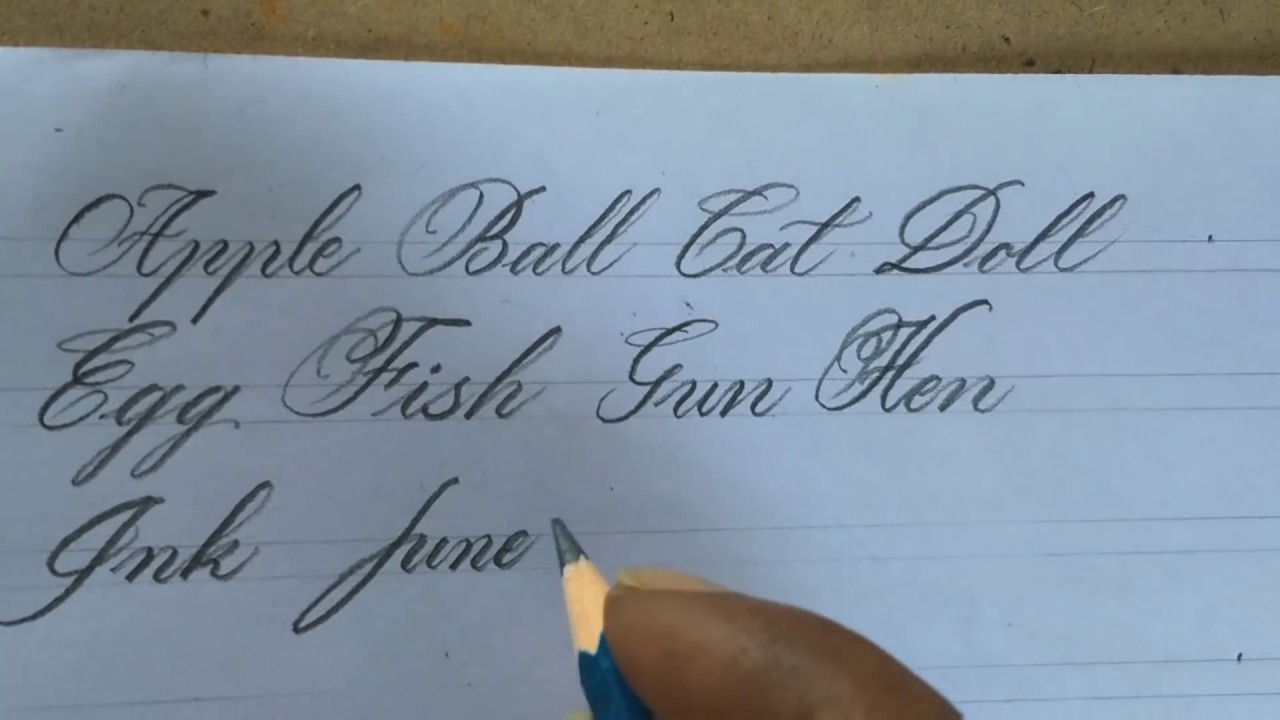 Apple Ball Cat Doll
Egg Fish Gun Hen
Ink June